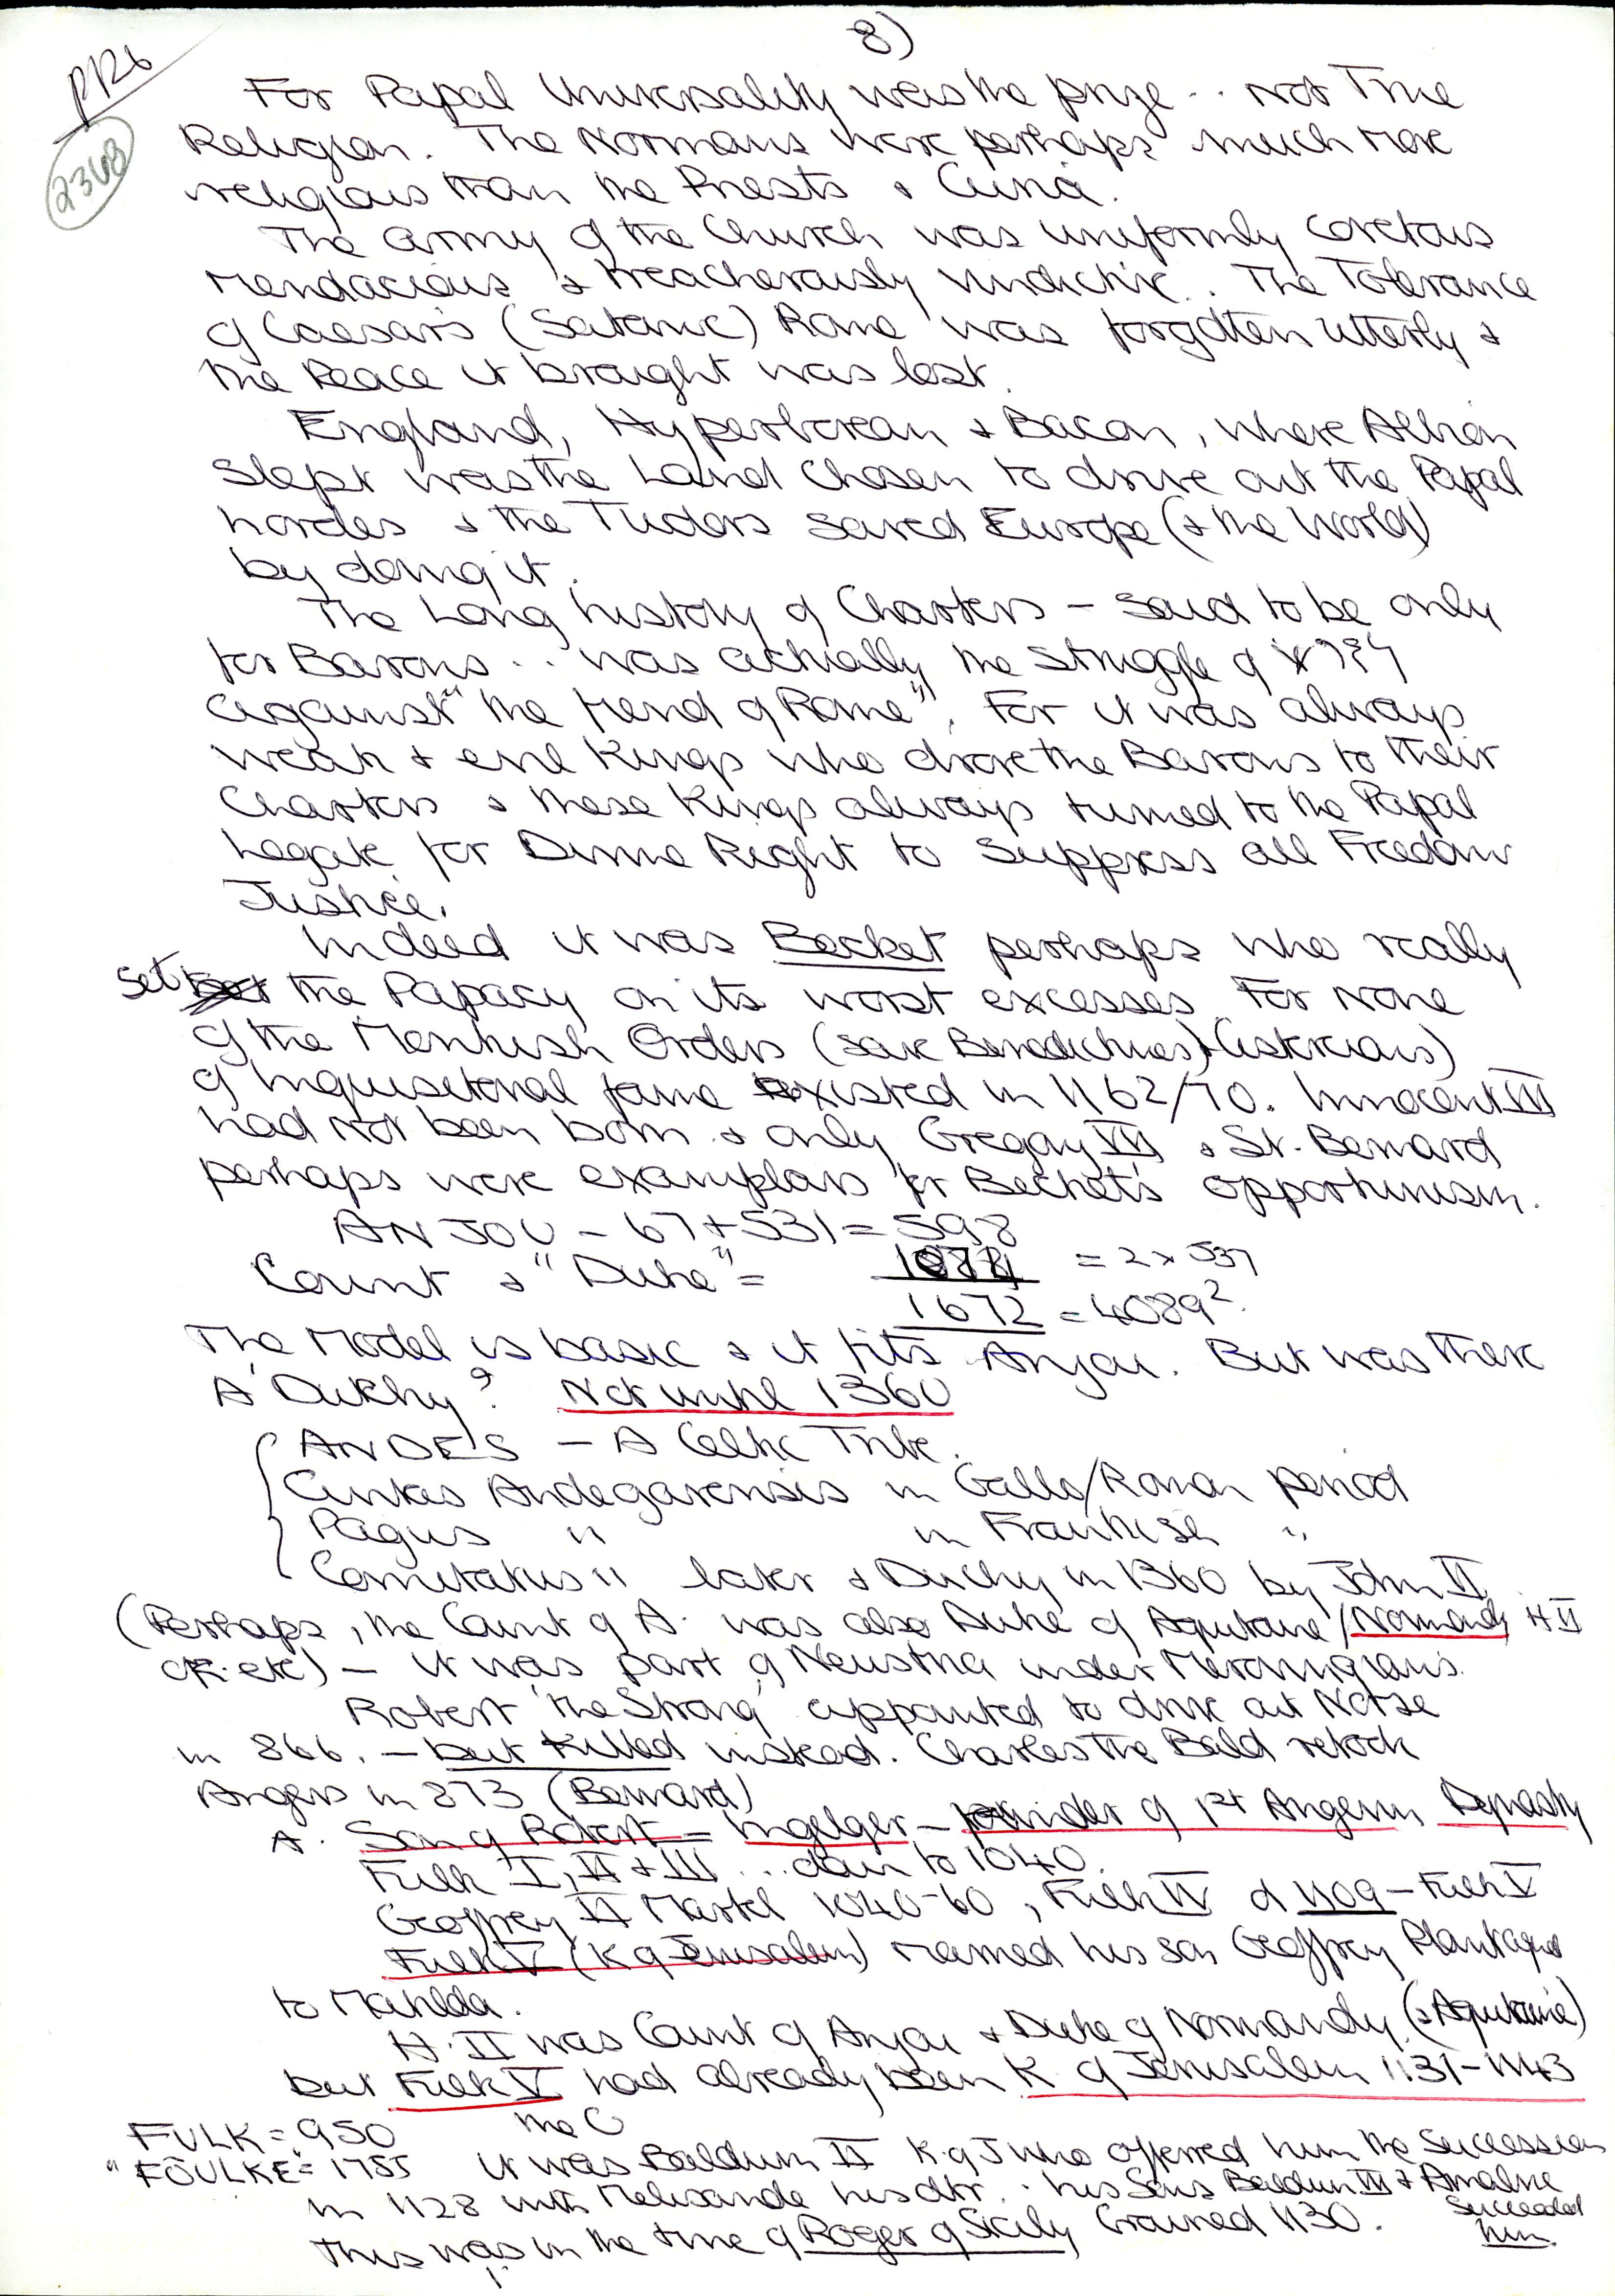 8)
PR6
2368
For Papal Universality was the prize .. Not True
Religion. The Normans were perhaps much more
religious than the Priests & Curia.
The army of the Church was uniformly covetous
mendacious & treacherously vindictive. The Tolerance
of Caesar's (Satanic) Rome was forgotten utterly &
the Peace it brought was lost.
England, Hyperborean & Bacon, where Albion
slept was the Land Chosen to drive out the Papal
hordes & the Tudors saved Europe (& the World)
by doing it.
The Long history of Charters – said to be only
for Barons .. was actually the struggle of
against "the fiend of Rome". For it was always
weak & evil Kings who drove the Barons to their
Charters & these Kings always turned to the Papal
Legate for Divine Right to suppress all Freedom
Justice.
Indeed it was Becket perhaps who really
set the Papacy on its worst excesses For None
of the Monkish Orders (save Benedictines) & Cistercians)
of Inquisitorial fame existed in 1162/70. Innocent III
had not been born & only Gregory VII & St. Bernard
perhaps were examplars for Becket's opportunism.
ANJOU – 67+531 = 598
Count & "Duke" = 1074 = 2 x 537
1672 = 4089².
The Model is basic & it fits Anjou. But was there
A Duchy? Not until 1360
ANDES – A Celtic Tribe.
Civitas Andegavensis in Gallo/Roman period
Pagus " in Frankish "
Comitatus " later & Duchy in 1360 by John II
(Perhaps, the Count of A. was also Duke of Aquitaine/Normandy H II
etc) – it was part of Neustria under Merovingians.
Robert 'the Strong' appointed to drive out Norse
in 866. – but killed instead. Charles the Bald retook
Angers in 873 (Bernard)
A. Son of Robert = Ingelger – founder of 1st Angevin Dynasty
Fulk I, II & III ... down to 1040.
Geoffrey II Martel 1040-60, Fulk IV d 1109 – Fulk V
Fulk V (K of Jerusalem) married his son Geoffrey Plantagnet
to Matilda.
H. II was Count of Anjou & Duke of Normandy (& Aquitaine)
but Fulk V had already been K of Jerusalem 1131-1143
the C
FULK = 950
"FOULKE" = 1755 it was Baldwin II K of J who offered him the succession
in 1128 with Melisande his dtr. . his Sons Baldwin III & Amalric
succeeded
him
This was in the time of Roger of Sicily Crowned 1130.